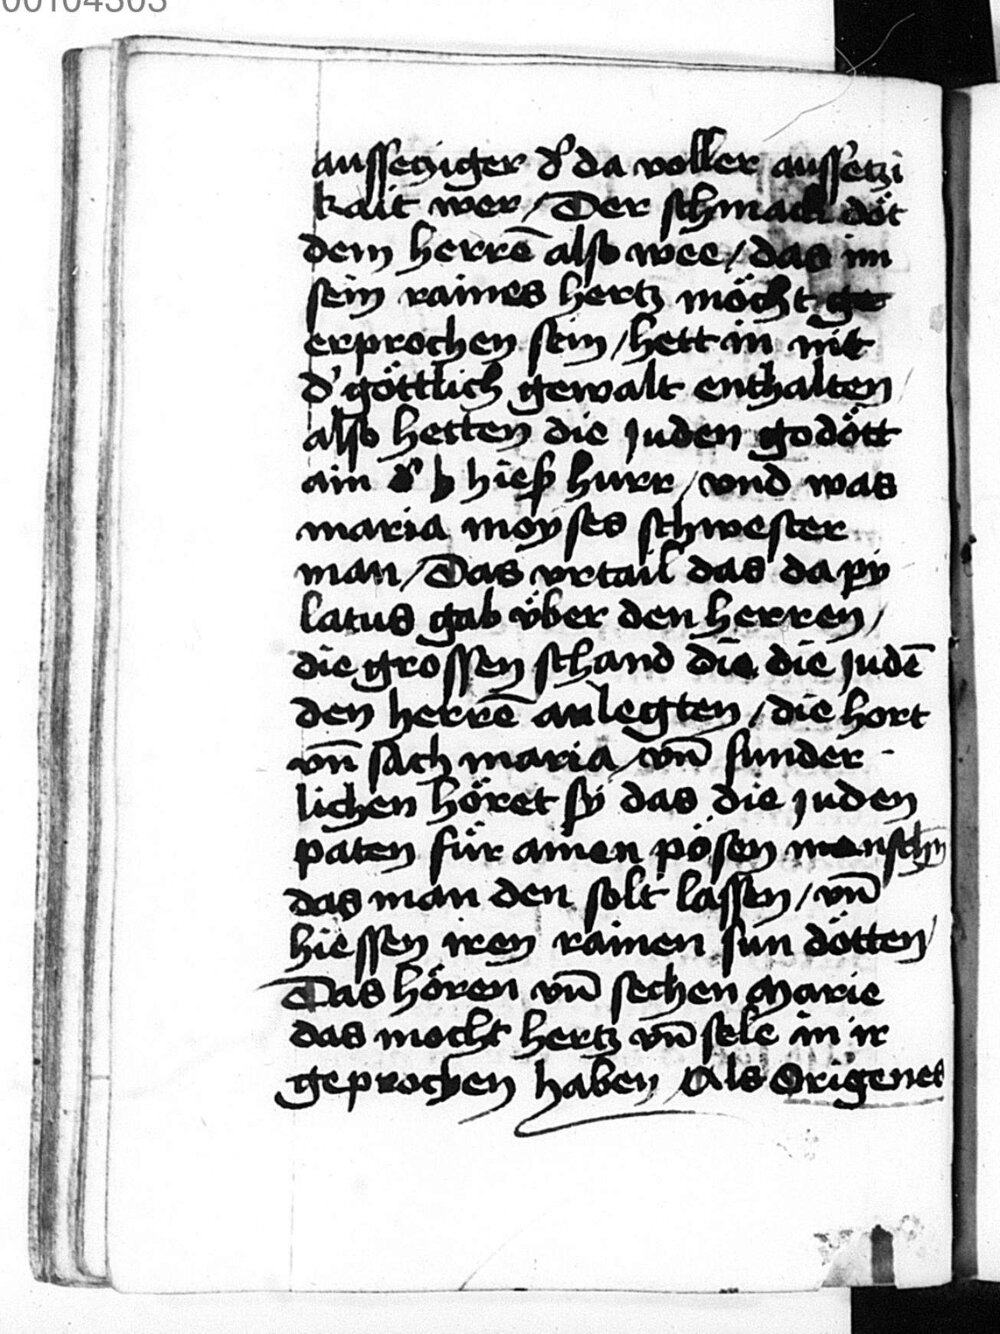 00104303
aussecziger d' da voller aussetzi
kait wer / Der schmack döt
dem herrē also wee / das im
sein raines hertz möcht ge
erprochen sein / hett in nit
d' göttlich gewalt enthalten /
also hetten die Juden godött
ain d' hieß hurr / vnd was
maria moyses schwester
man / Das vrtail das da py
latus gab vber den herren /
die grossen schand die die Judē
den herrē anlegten / die hort
vn̄ sach maria / vn̄ sunder
lichen höret sy das die Juden
paten für ainen pösen menschn
das man den solt lassen / vn̄
hiessen iren rainen sun dötten /
Das hören vn̄ sechen Marie
das mocht hertz vn̄ sele in ir
geprochen haben / Als Origenes